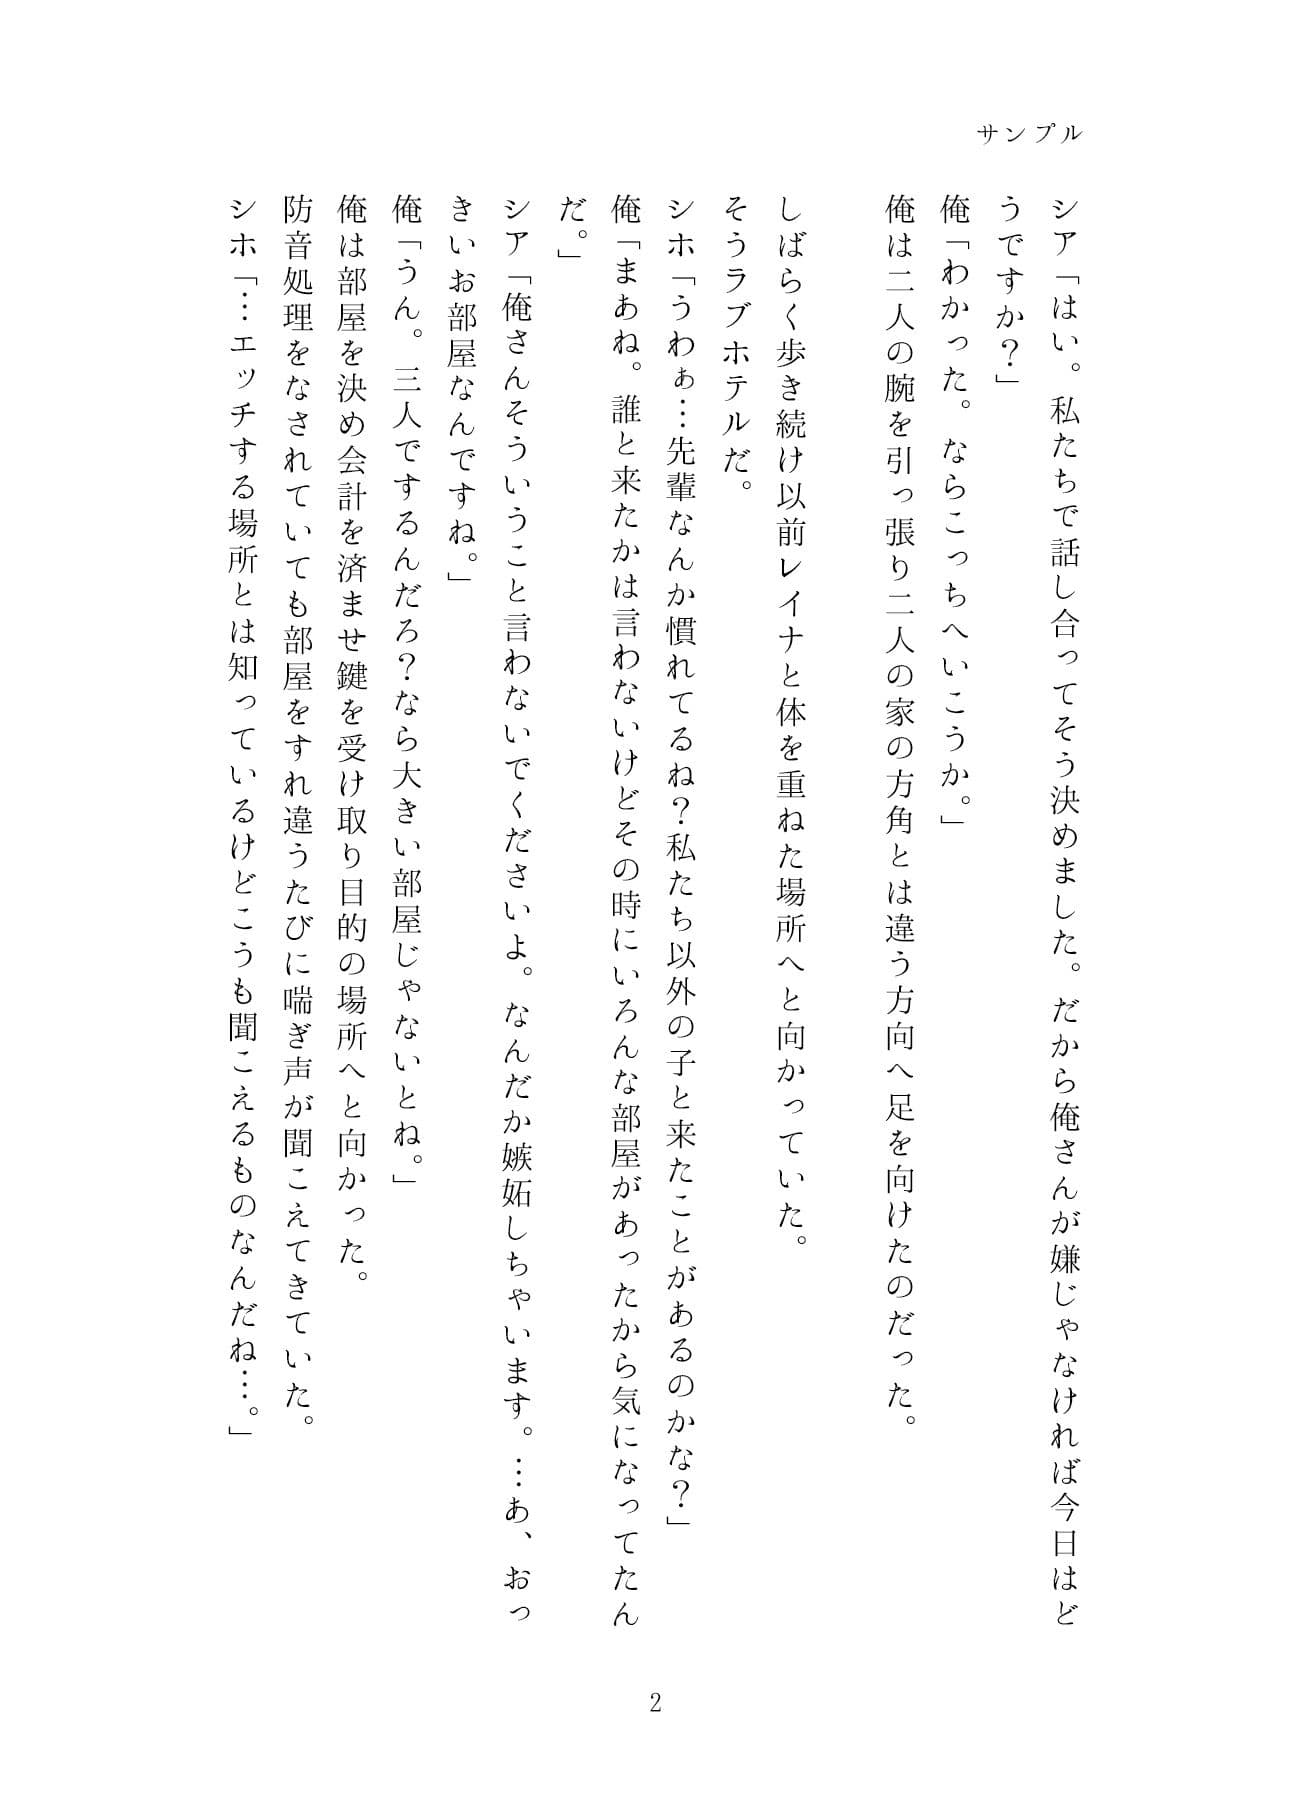 サンプル
シア「はい。私たちで話し合ってそう決めました。だから俺さんが嫌じゃなければ今日はど
うですか？」
俺「わかった。ならこっちへいこうか。」
俺は二人の腕を引っ張り二人の家の方角とは違う方向へ足を向けたのだった。
しばらく歩き続け以前レイナと体を重ねた場所へと向かっていた。
そうラブホテルだ。
シホ「うわぁ…先輩なんか慣れてるね？私たち以外の子と来たことがあるのかな？」
俺「まあね。誰と来たかは言わないけどその時にいろんな部屋があったから気になってたん
だ。」
シア「俺さんそういうこと言わないでくださいよ。なんだか嫉妬しちゃいます。…あ、おっ
きいお部屋なんですね。」
俺「うん。三人でするんだろ？なら大きい部屋じゃないとね。」
俺は部屋を決め会計を済ませ鍵を受け取り目的の場所へと向かった。
防音処理をなされていても部屋をすれ違うたびに喘ぎ声が聞こえてきていた。
シホ「…エッチする場所とは知っているけどこうも聞こえるものなんだね…。」
2